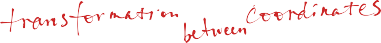 transformation between coordinates